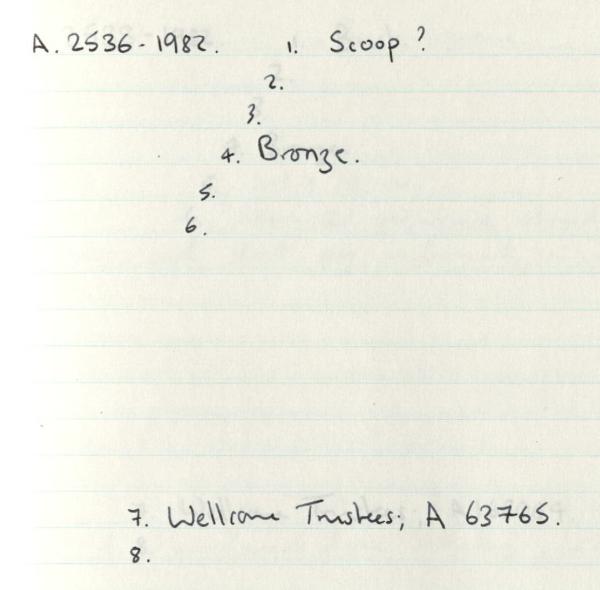 A. 2536-1982. 1. Scoop?
2.
3.
4. Bronze.
5.
6.
7. Wellcome Trustees; A 63765.
8.